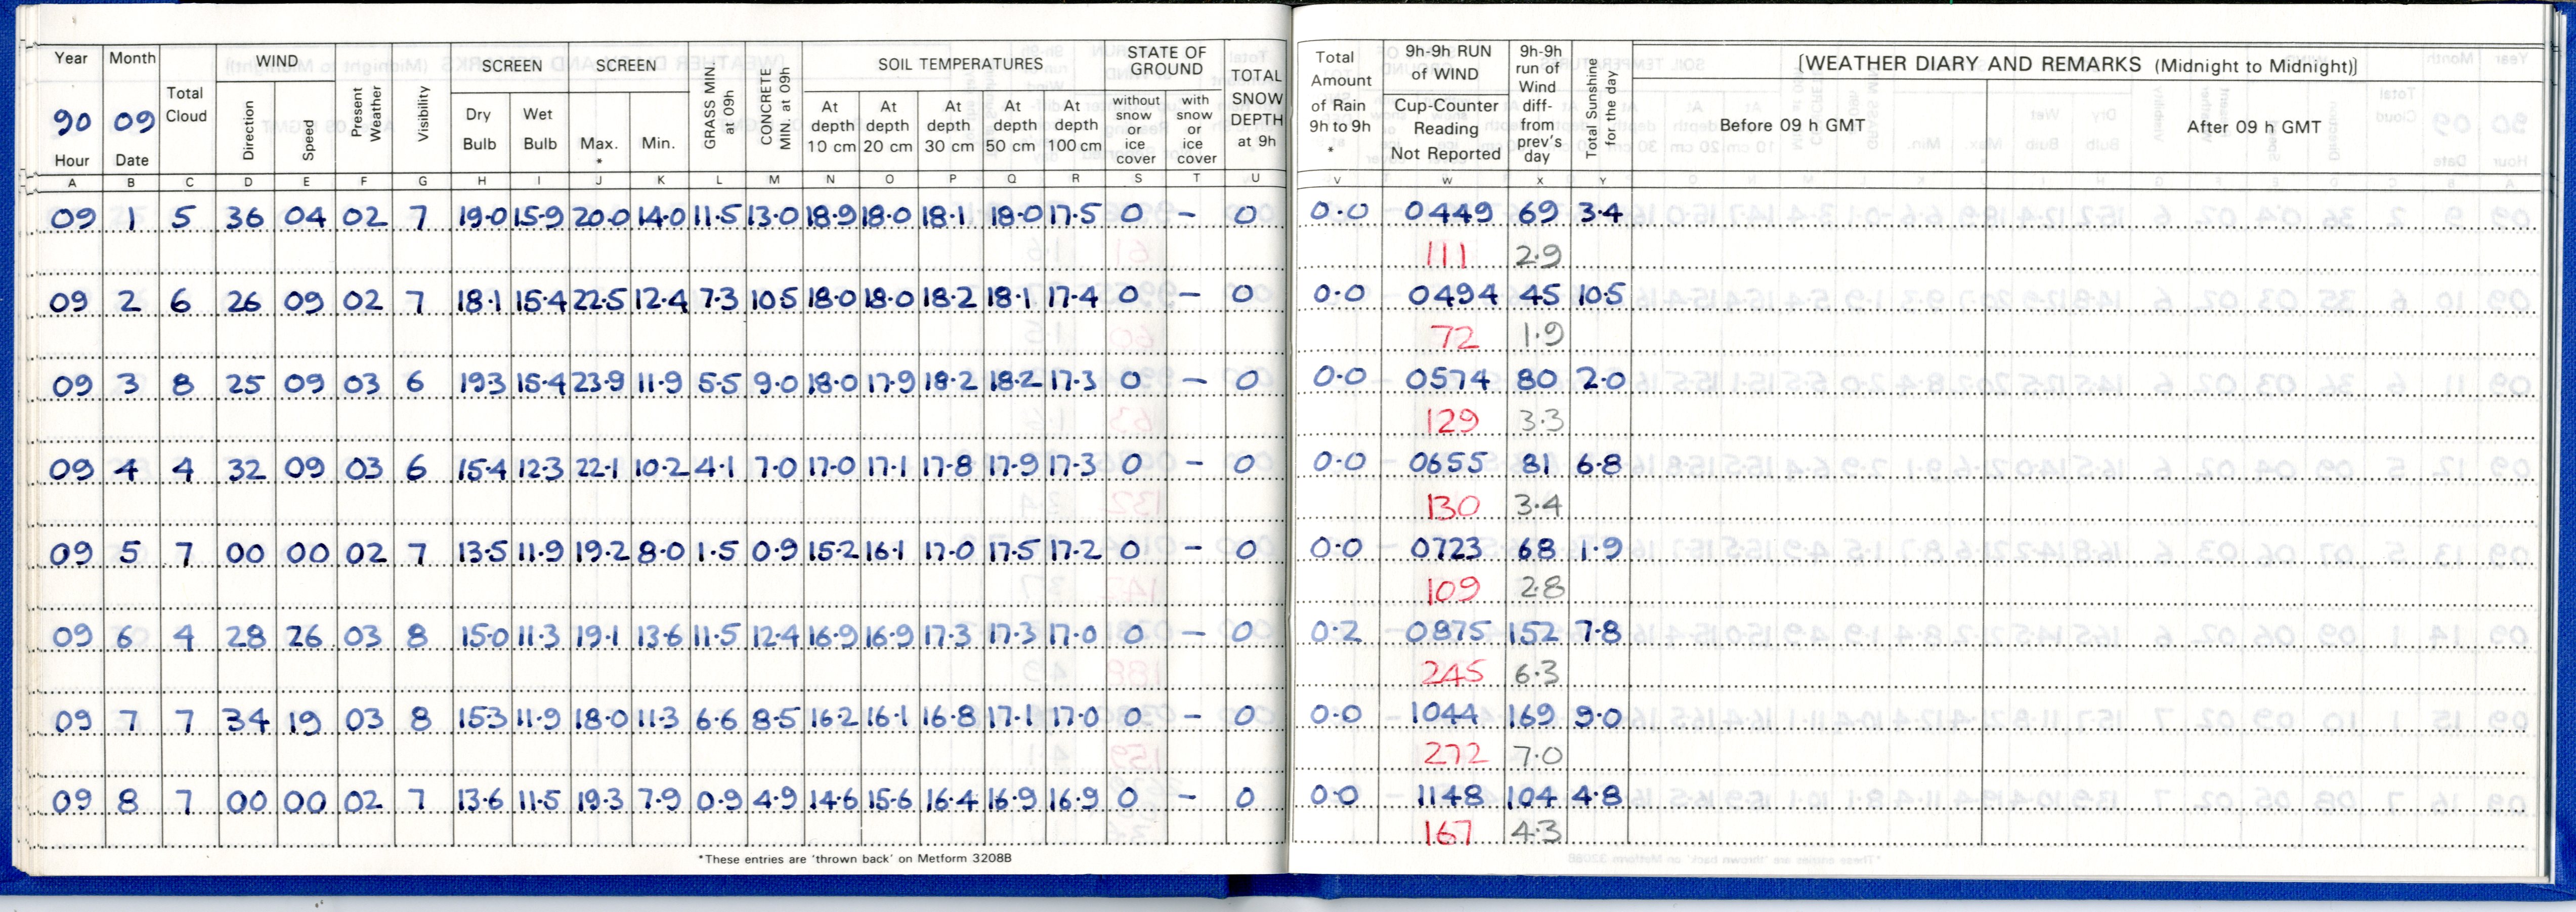 Year Month WIND SCREEN SCREEN SOIL TEMPERATURES STATE OF GROUND
90 09 Total Cloud Direction Speed Present Weather Visibility Dry Bulb Wet Bulb Max. * Min. GRASS MIN. at 09h CONCRETE MIN. at 09h At depth 10 cm At depth 20 cm At depth 30 cm At depth 50 cm At depth 100 cm without snow or ice cover with snow or ice cover TOTAL SNOW DEPTH at 9h
Hour Date
Total Amount of Rain 9h to 9h * 9h-9h RUN of WIND Cup-Counter Reading Not Reported 9h-9h run of Wind diff- from prev's day Total Sunshine for the day [WEATHER DIARY AND REMARKS (Midnight to Midnight)]
Before 09 h GMT After 09 h GMT
A B C D E F G H I J K L M N O P Q R S T U V W X Y
09 1 5 36 04 02 7 19.0 15.9 20.0 14.0 11.5 13.0 18.9 18.0 18.1 18.0 17.5 0 – 0 0.0 0449 69 3.4
111 2.9
09 2 6 26 09 02 7 18.1 15.4 22.5 12.4 7.3 10.5 18.0 18.0 18.2 18.1 17.4 0 – 0 0.0 0494 45 10.5
72 1.9
09 3 8 25 09 03 6 19.3 15.4 23.9 11.9 5.5 9.0 18.0 17.9 18.2 18.2 17.3 0 – 0 0.0 0574 80 2.0
129 3.3
09 4 4 32 09 03 6 15.4 12.3 22.1 10.2 4.1 7.0 17.0 17.1 17.8 17.9 17.3 0 – 0 0.0 0655 81 6.8
130 3.4
09 5 7 00 00 02 7 13.5 11.9 19.2 8.0 1.5 0.9 15.2 16.1 17.0 17.5 17.2 0 – 0 0.0 0723 68 1.9
109 2.8
09 6 4 28 26 03 8 15.0 11.3 19.1 13.6 11.5 12.4 16.9 16.9 17.3 17.3 17.0 0 – 0 0.2 0875 152 7.8
245 6.3
09 7 7 34 19 03 8 15.3 11.9 18.0 11.3 6.6 8.5 16.2 16.1 16.8 17.1 17.0 0 – 0 0.0 1044 169 9.0
272 7.0
09 8 7 00 00 02 7 13.6 11.5 19.3 7.9 0.9 4.9 14.6 15.6 16.4 16.9 16.9 0 – 0 0.0 1148 104 4.8
167 4.3
*These entries are 'thrown back' on Metform 3208B